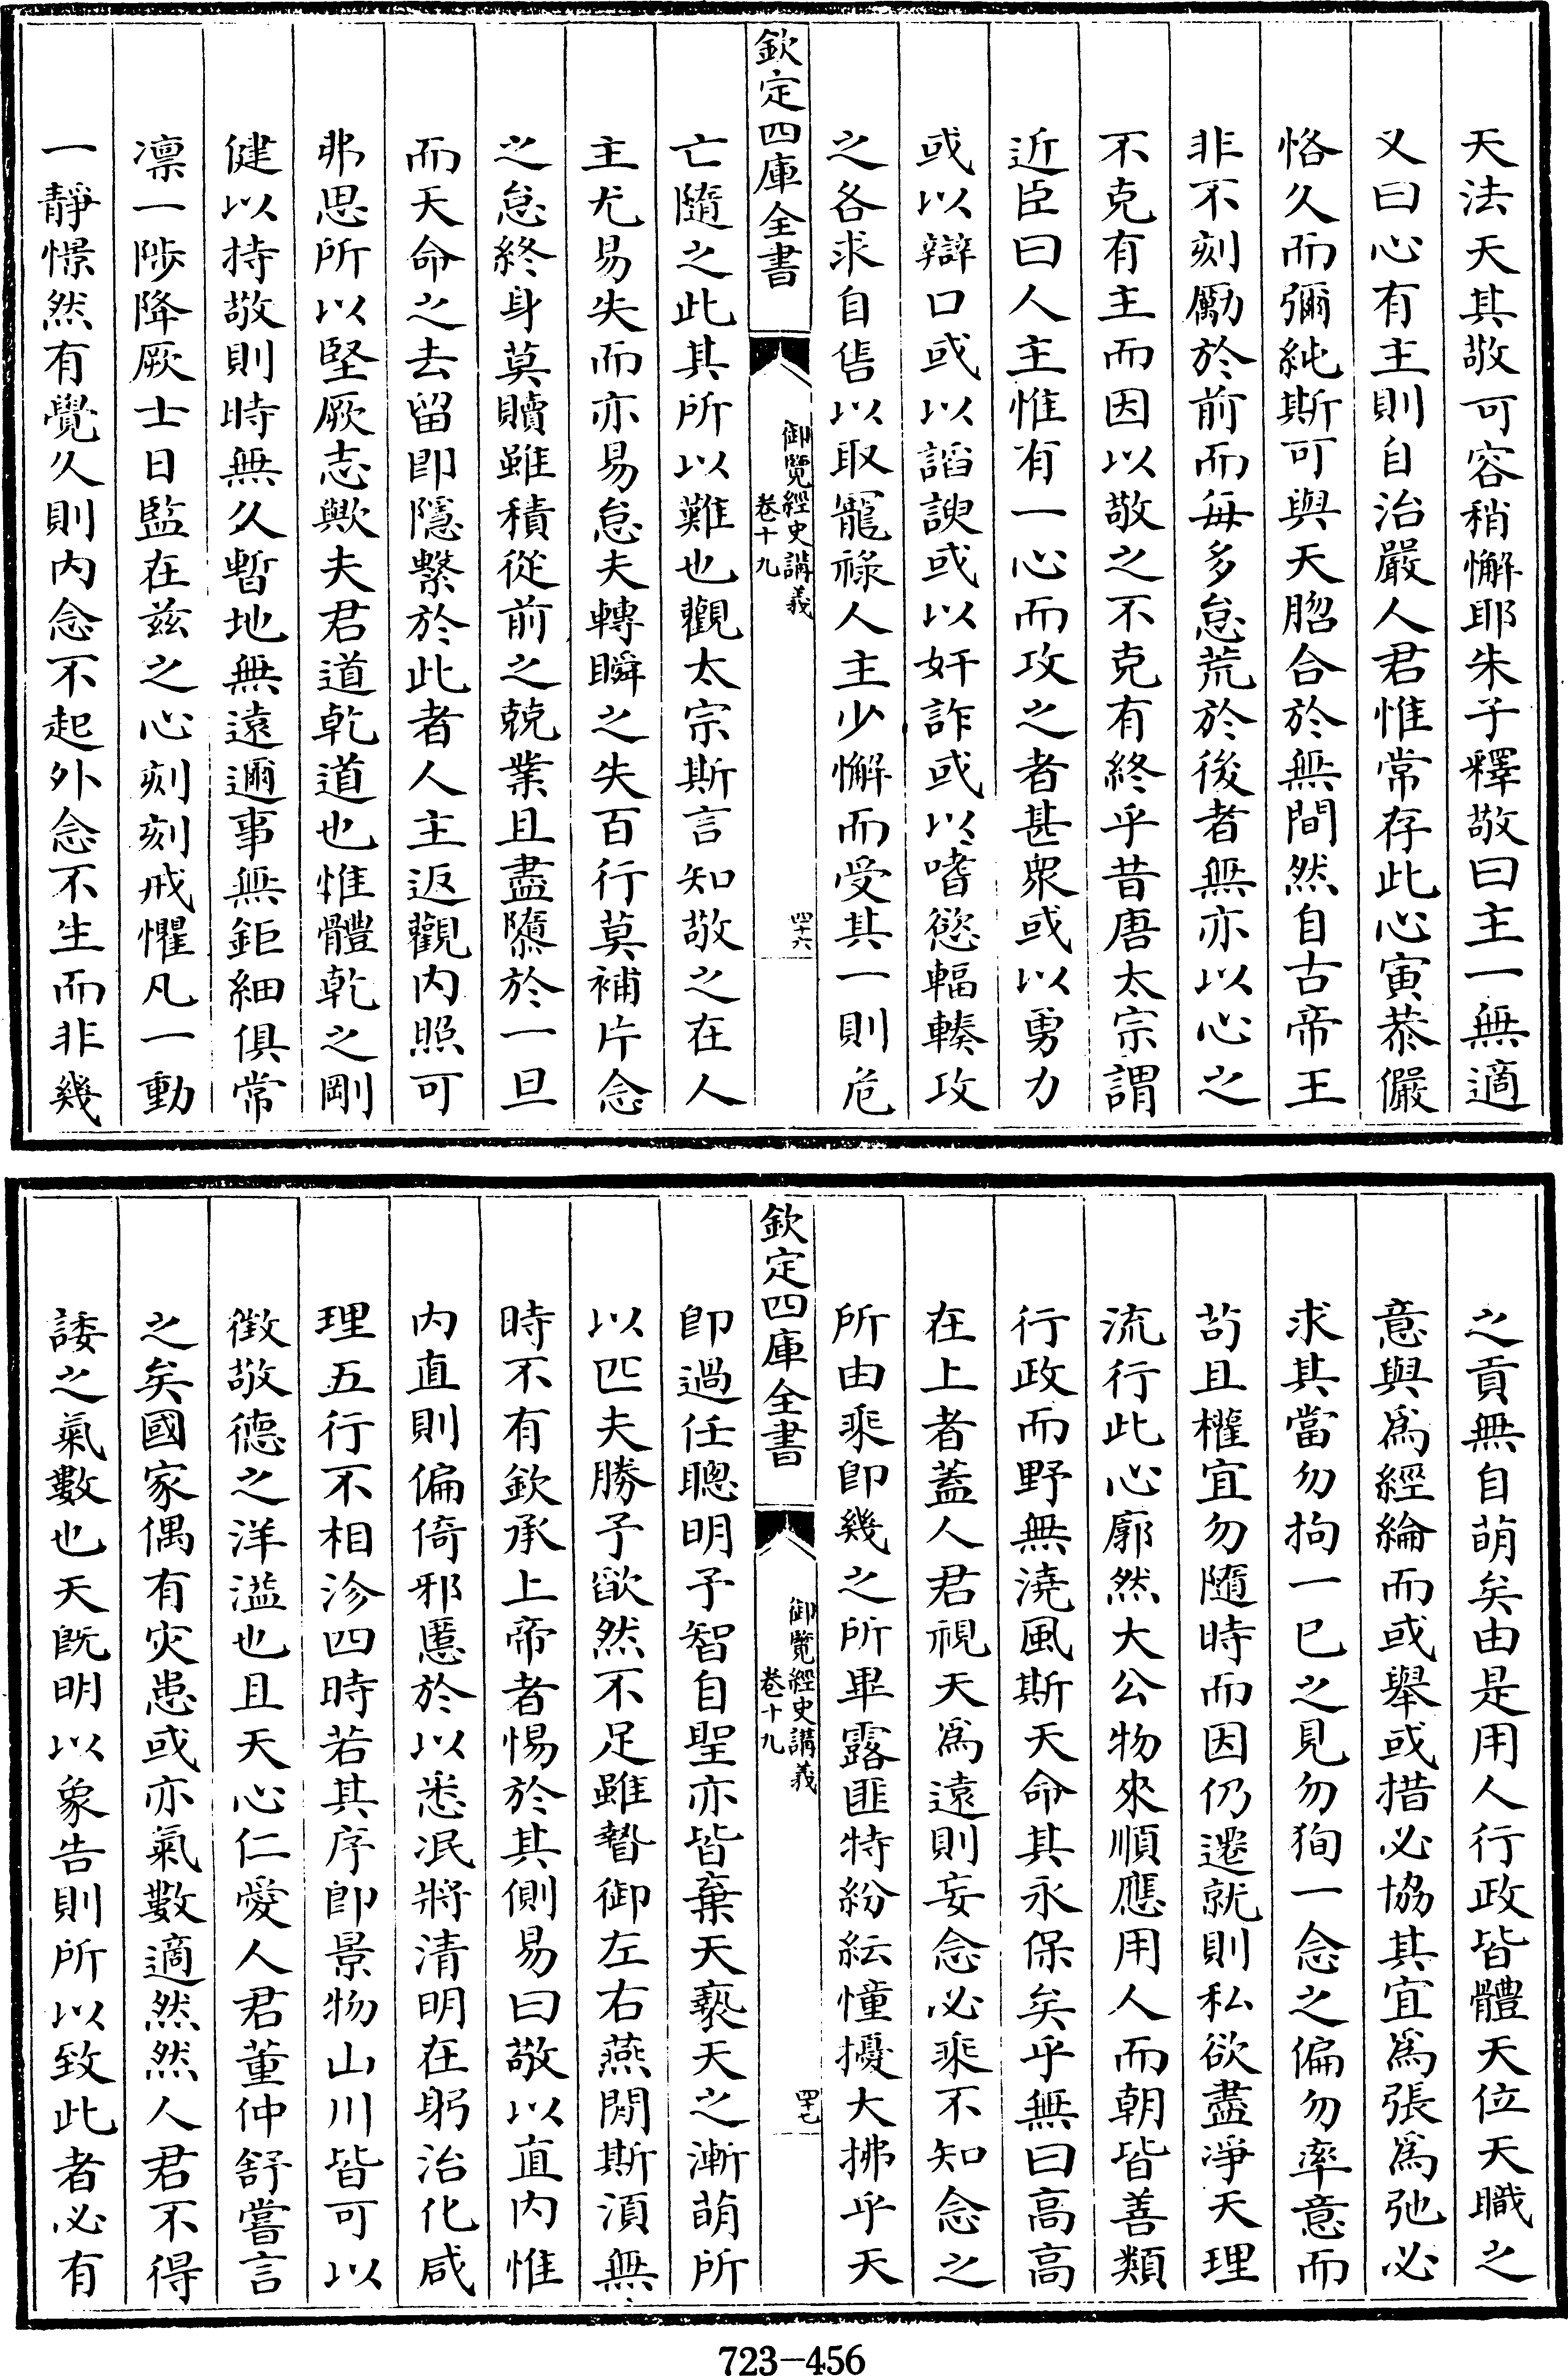 天法天其敬可容稍懈耶朱子釋敬曰主一無適
又曰心有主則自治嚴人君惟常存此心寅恭儼
恪久而彌純斯可與天脗合於無間然自古帝王
非不刻勵於前而每多怠荒於後者無亦以心之
不克有主而因以敬之不克有終乎昔唐太宗謂
近臣曰人主惟有一心而攻之者甚衆或以勇力
或以辯口或以諂諛或以奸詐或以嗜慾輻輳攻
之各求自售以取寵祿人主少懈而受其一則危
欽定四庫全書
御覽經史講義
卷十九
四十六
亡隨之此其所以難也觀太宗斯言知敬之在人
主尤易失而亦易怠夫轉瞬之失百行莫補片念
之怠終身莫贖雖積從前之兢業且盡隳於一旦
而天命之去留即隱繫於此者人主返觀内照可
弗思所以堅厥志歟夫君道乾道也惟體乾之剛
健以持敬則時無久暫地無遠邇事無鉅細俱常
凛一陟降厥士日監在兹之心刻刻戒懼凡一動
一靜憬然有覺久則内念不起外念不生而非幾
之貢無自萌矣由是用人行政皆體天位天職之
意與為經綸而或舉或措必協其宜為張為弛必
求其當勿拘一已之見勿狥一念之偏勿率意而
苟且權宜勿隨時而因仍遷就則私欲盡凈天理
流行此心廓然大公物來順應用人而朝皆善類
行政而野無澆風斯天命其永保矣乎無曰高高
在上者蓋人君視天為遠則妄念必乘不知念之
所由乘即幾之所畢露匪特紛紜憧擾大拂乎天
欽定四庫全書
御覽經史講義
卷十九
四十七
即過任聰明予智自聖亦皆棄天褻天之漸萌所
以匹夫勝予欿然不足雖暬御左右燕閒斯須無
時不有欽承上帝者惕於其側易曰敬以直内惟
内直則偏倚邪慝於以悉泯將清明在躬治化咸
理五行不相沴四時若其序即景物山川皆可以
徴敬德之洋溢也且天心仁愛人君董仲舒嘗言
之矣國家偶有灾患或亦氣數適然然人君不得
諉之氣數也天既明以象告則所以致此者必有
723-456